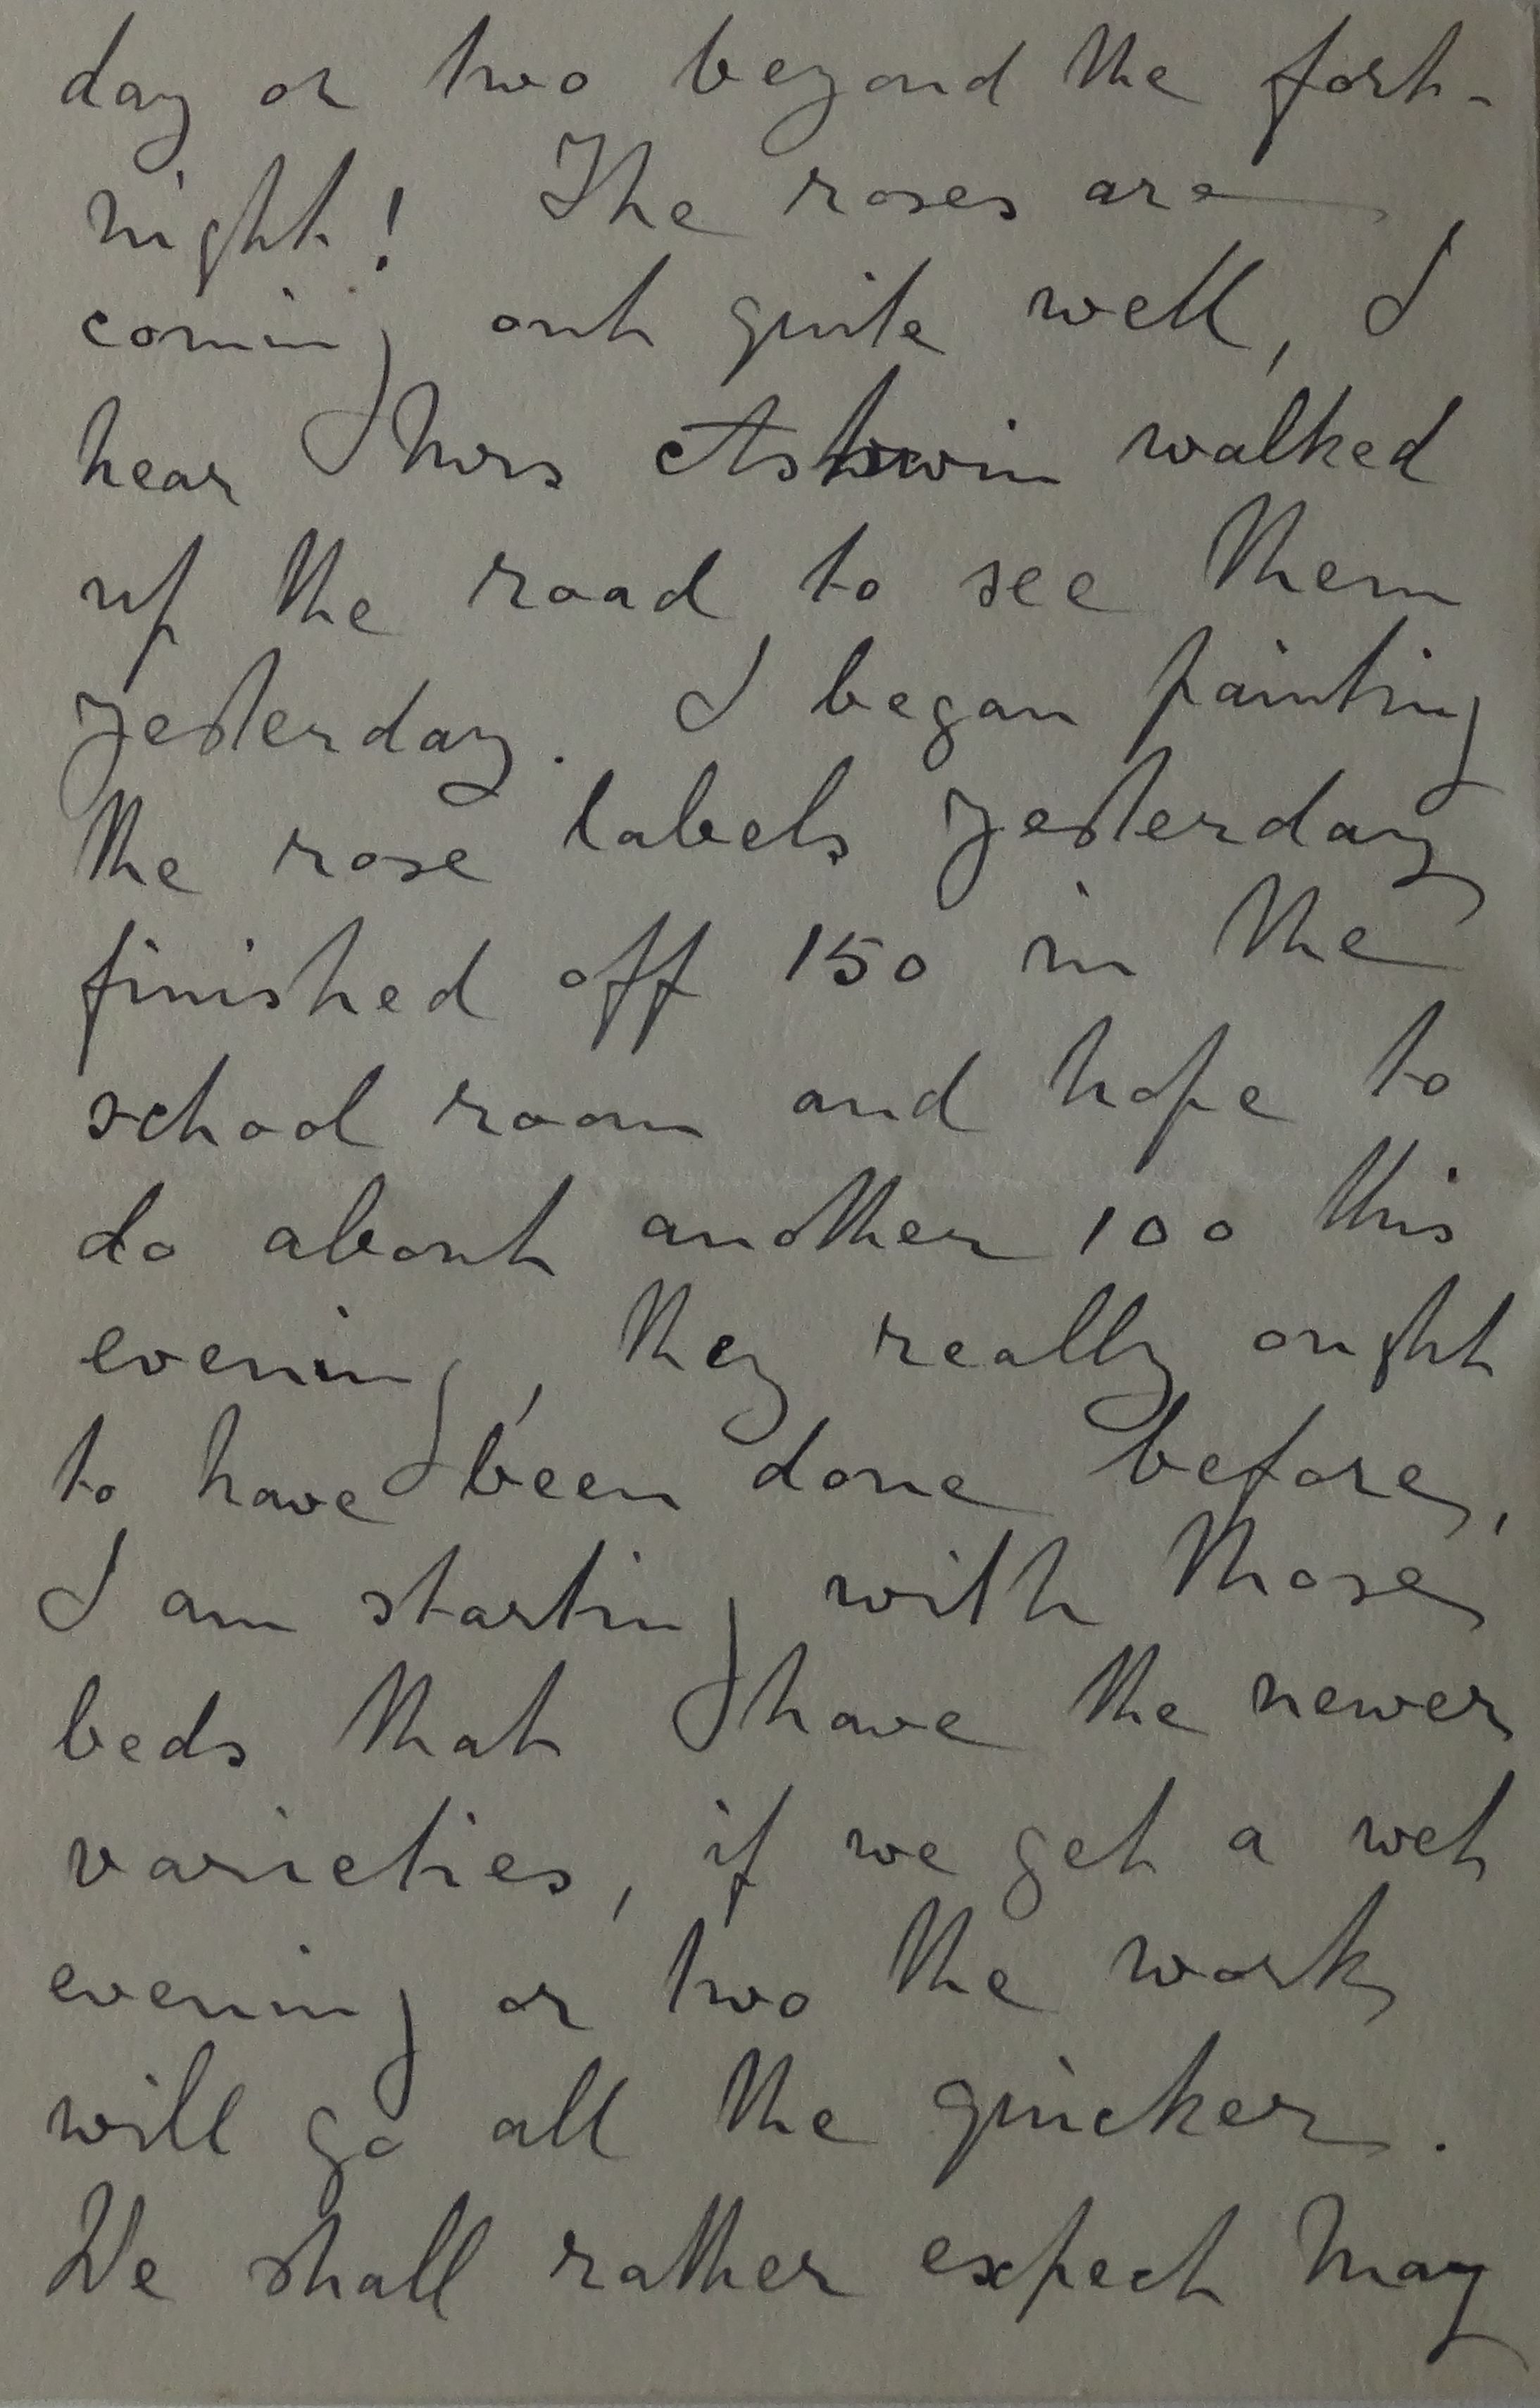 day or two beyond the fort-
night! The roses are
coming out quite well, I
hear Mrs Ashwin walked
up the road to see them
yesterday. I began painting
the rose labels yesterday
finished off 150 in the
school room and hope to
do about another 100 this
evening, they really ought
to have been done before,
I am starting with those
beds that have the newer
varieties, if we get a wet
evening or two the work
will go all the quicker.
We shall rather expect May